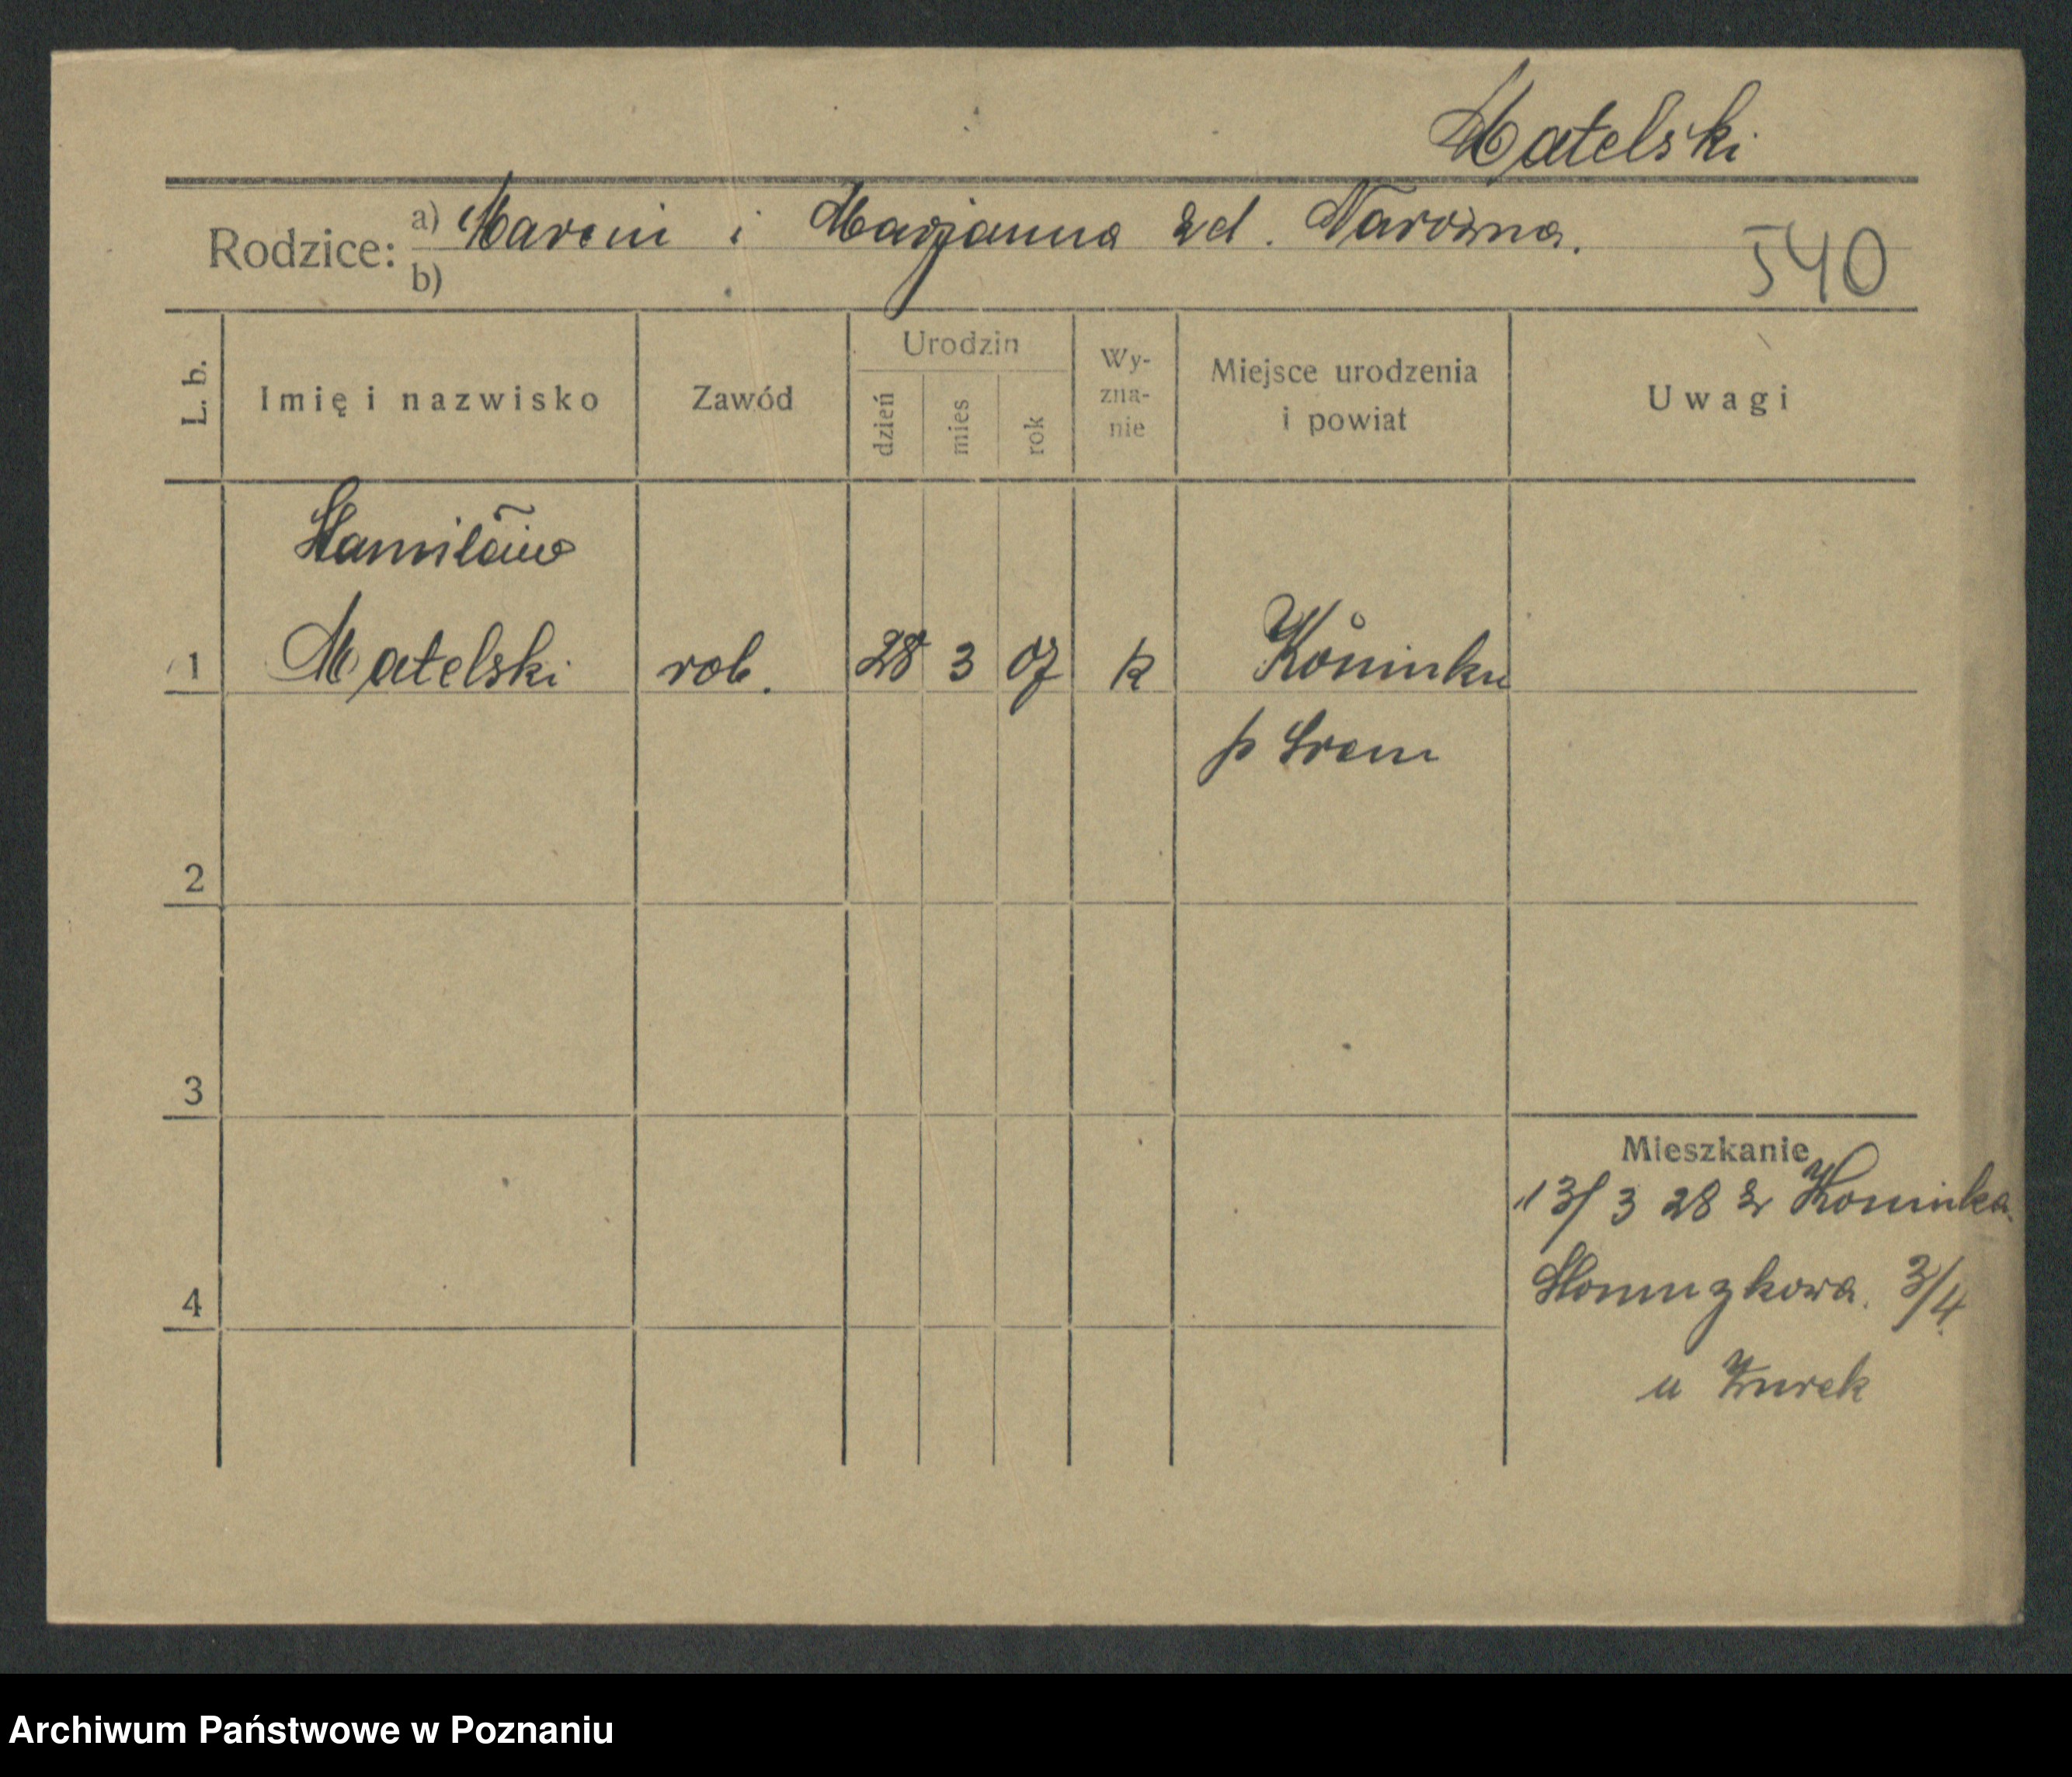 Matelski
Rodzice: a) Marcin i Marjanna zd. Narożna.
b)
540
L. b.
Imię i nazwisko
Zawód
Urodzin
dzień
mies
rok
Wy-
zna-
nie
Miejsce urodzenia
i powiat
Uwagi
Stanisław
1 Matelski rob. 28 3 07 k Koninku
p Srem
2
3
Mieszkanie
13/3 28 z Koninka.
3/4
4
u Żurek
Archiwum Państwowe w Poznaniu